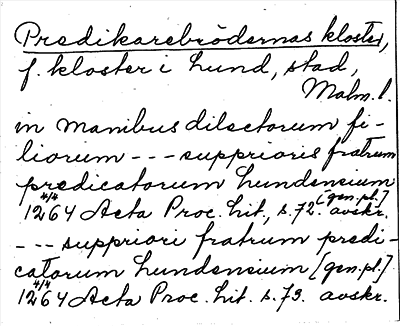 Predikarebrödernas kloster,
f. kloster i Lund, stad,
Malm. l.
in manibus dilectorum fi-
liorum - - - supprioris fratrum
predicatorum Lundensium
[gen.pl.]
4/4
1264 Acta Proc. Lit., s. 72. avskr.
- - - suppriori fratrum predi-
catorum Lundensium [gen.pl.].
4/4
1264 Acta Proc. Lit. s. 73. avskr.